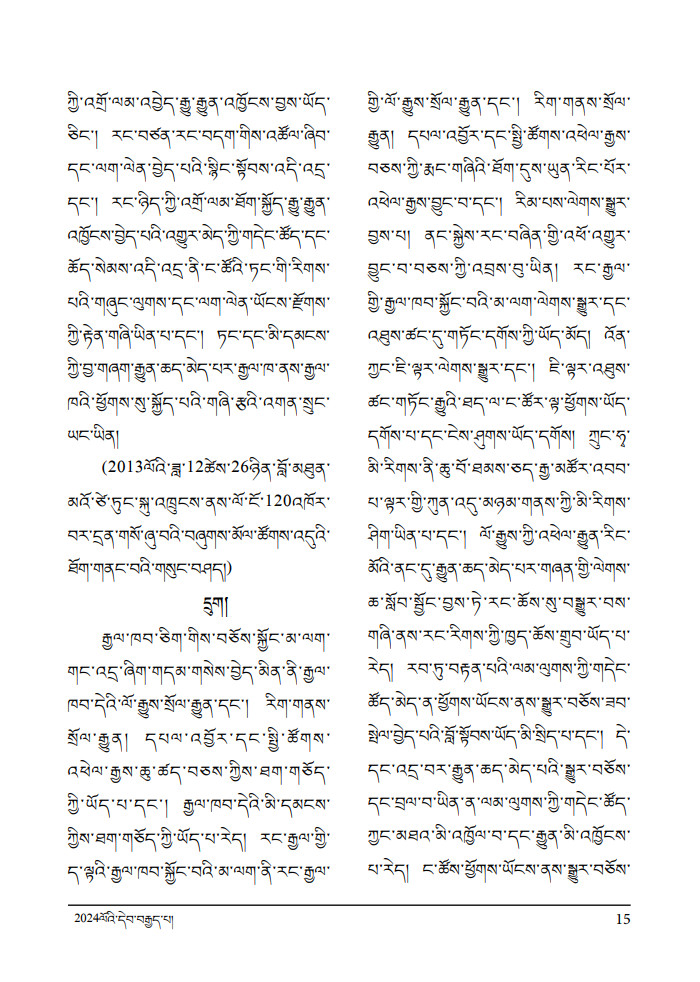 ཀྱི་འགྲོ་ལམ་འབྱེད་རྒྱུ་རྒྱུན་འཁྱོངས་བྱས་ཡོད་
ཅིང་། རང་བཙན་རང་བདག་གིས་འཚོལ་ཞིབ་
དང་ལག་ལེན་བྱེད་པའི་སྙིང་སྟོབས་འདི་འདྲ་
དང་། རང་ཉིད་ཀྱི་འགྲོ་ལམ་ཐོག་སྐྱོད་རྒྱུ་རྒྱུན་
འཁྱོངས་བྱེད་པའི་འགྱུར་མེད་ཀྱི་གདེང་ཚོད་དང་
ཆོད་སེམས་འདི་འདྲ་ནི་ང་ཚོའི་ཏང་གི་རིགས་
པའི་གཞུང་ལུགས་དང་ལག་ལེན་ཡོངས་རྫོགས་
ཀྱི་རྟེན་གཞི་ཡིན་པ་དང་། ཏང་དང་མི་དམངས་
ཀྱི་བྱ་གཞག་རྒྱུན་ཆད་མེད་པར་རྒྱལ་ཁ་ནས་རྒྱལ་
ཁའི་ཕྱོགས་སུ་སྐྱོད་པའི་གཞི་རྩའི་འགན་སྲུང་
ཡང་ཡིན།
(2013ལོའི་ཟླ་12ཚེས་26ཉིན་བློ་མཐུན་
མའོ་ཙེ་ཏུང་སྐུ་འཁྲུངས་ནས་ལོ་ངོ་120འཁོར་
བར་དྲན་གསོ་ཞུ་བའི་བཞུགས་མོལ་ཚོགས་འདུའི་
ཐོག་གནང་བའི་གསུང་བཤད།)
དྲུག།
རྒྱལ་ཁབ་ཅིག་གིས་བཅོས་སྐྱོང་མ་ལག་
གང་འདྲ་ཞིག་གདམ་གསེས་བྱེད་མིན་ནི་རྒྱལ་
ཁབ་དེའི་ལོ་རྒྱུས་སྲོལ་རྒྱུན་དང་། རིག་གནས་
སྲོལ་རྒྱུན། དཔལ་འབྱོར་དང་སྤྱི་ཚོགས་
འཕེལ་རྒྱས་ཆུ་ཚད་བཅས་ཀྱིས་ཐག་གཅོད་
ཀྱི་ཡོད་པ་དང་། རྒྱལ་ཁབ་དེའི་མི་དམངས་
ཀྱིས་ཐག་གཅོད་ཀྱི་ཡོད་པ་རེད། རང་རྒྱལ་གྱི་
ད་ལྟའི་རྒྱལ་ཁབ་སྐྱོང་བའི་མ་ལག་ནི་རང་རྒྱལ་
གྱི་ལོ་རྒྱུས་སྲོལ་རྒྱུན་དང་། རིག་གནས་སྲོལ་
རྒྱུན། དཔལ་འབྱོར་དང་སྤྱི་ཚོགས་འཕེལ་རྒྱས་
བཅས་ཀྱི་རྨང་གཞིའི་ཐོག་དུས་ཡུན་རིང་པོར་
འཕེལ་རྒྱས་བྱུང་བ་དང་། རིམ་པས་ལེགས་སྒྱུར་
བྱས་པ། ནང་སྐྱེས་རང་བཞིན་གྱི་འཕོ་འགྱུར་
བྱུང་བ་བཅས་ཀྱི་འབྲས་བུ་ཡིན། རང་རྒྱལ་
གྱི་རྒྱལ་ཁབ་སྐྱོང་བའི་མ་ལག་ལེགས་སྒྱུར་དང་
འཐུས་ཚང་དུ་གཏོང་དགོས་ཀྱི་ཡོད་མོད། འོན་
ཀྱང་ཇི་ལྟར་ལེགས་སྒྱུར་དང་། ཇི་ལྟར་འཐུས་
ཚང་གཏོང་རྒྱུའི་ཐད་ལ་ང་ཚོར་ལྟ་ཕྱོགས་ཡོད་
དགོས་པ་དང་ངེས་ཤུགས་ཡོད་དགོས། ཀྲུང་ཧྭ་
མི་རིགས་ནི་ཆུ་བོ་ཐམས་ཅད་རྒྱ་མཚོར་འབབ་
པ་ལྟར་གྱི་ཀུན་འདུ་མཉམ་གནས་ཀྱི་མི་རིགས་
ཤིག་ཡིན་པ་དང་། ལོ་རྒྱུས་ཀྱི་འཕེལ་རྒྱུན་རིང་
མོའི་ནང་དུ་རྒྱུན་ཆད་མེད་པར་གཞན་གྱི་ལེགས་
ཆ་སློབ་སྦྱོང་བྱས་ཏེ་རང་ཆོས་སུ་བསྒྱུར་བས་
གཞི་ནས་རང་རིགས་ཀྱི་ཁྱད་ཆོས་གྲུབ་ཡོད་པ་
རེད། རབ་ཏུ་བརྟན་པའི་ལམ་ལུགས་ཀྱི་གདེང་
ཚོད་མེད་ན་ཕྱོགས་ཡོངས་ནས་སྒྱུར་བཅོས་ཟབ་
སྤེལ་བྱེད་པའི་བློ་སྟོབས་ཡོད་མི་སྲིད་པ་དང་། དེ་
དང་འདྲ་བར་རྒྱུན་ཆད་མེད་པའི་སྒྱུར་བཅོས་
དང་བྲལ་བ་ཡིན་ན་ལམ་ལུགས་ཀྱི་གདེང་ཚོད་
ཀྱང་མཐའ་མི་འཁྱོལ་བ་དང་རྒྱུན་མི་འཁྱོངས་
པ་རེད། ང་ཚོས་ཕྱོགས་ཡོངས་ནས་སྒྱུར་བཅོས་
2024ལོའི་དེབ་བརྒྱད་པ། 15